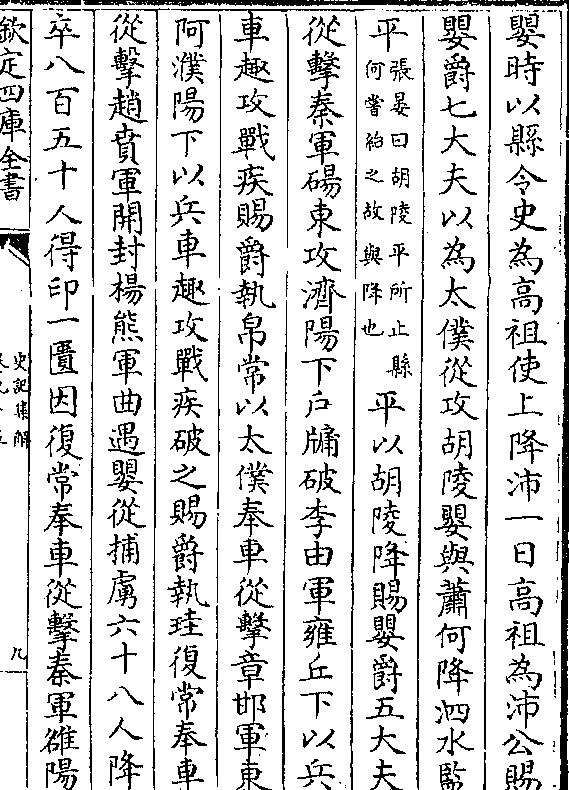 嬰時以縣令史為高祖使上降沛一日高祖為沛公賜
嬰爵七大夫以為太僕從攻胡陵嬰與蕭何降泗水監
平張晏曰胡陵平所止縣何嘗給之故與降也平以胡陵降賜嬰爵五大夫
從擊秦軍碭東攻濟陽下戶牖破李由軍雍丘下以兵
車趣攻戰疾賜爵執帛常以太僕奉車從擊章邯軍東
阿濮陽下以兵車趣攻戰疾破之賜爵執珪復常奉車
從擊趙賁軍開封楊熊軍曲遇嬰從捕虜六十八人降
卒八百五十人得印一匱因復常奉車從擊秦軍雒陽
欽定四庫全書
史記集解
九